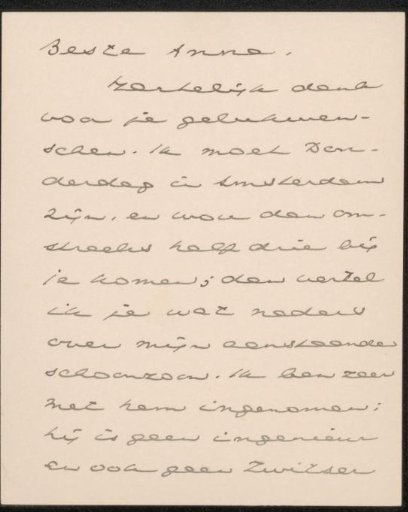 Beste Anna.
Hartelijk dank
voor je gelukwen-
schen. Ik moet Don-
derdag in Amsterdam
zijn, en wou dan om-
streeks half drie bij
je komen; dan vertel
ik je wat naders
over mijn aanstaande
schoonzoon. Ik ben zeer
met hem ingenomen:
hij is geen ingenieur
en ook geen Zwitser